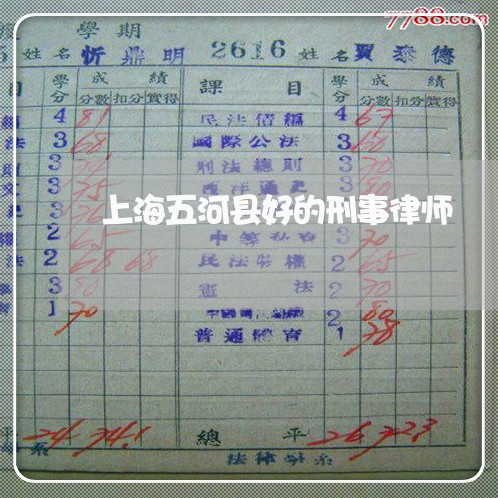 7788.com
學期
姓名 忻鼎明 2616 姓名 賈泰德
目 學分 成績 課目 學分 成績
分數 扣分 實得 分數 扣分 實得
4 81 民法債編 4 67
法 3 68 國際公法 3 60
3 刑法總則 3 70
3 75 3
上海五河县好的刑事律师
2 65 3 70
法 2 68 68 民法物權 2 65
3 80 憲法 2 70
1 70 2 80
普通體育 1 78
平 24 74.1 總平 26 72.3
系 法律學系